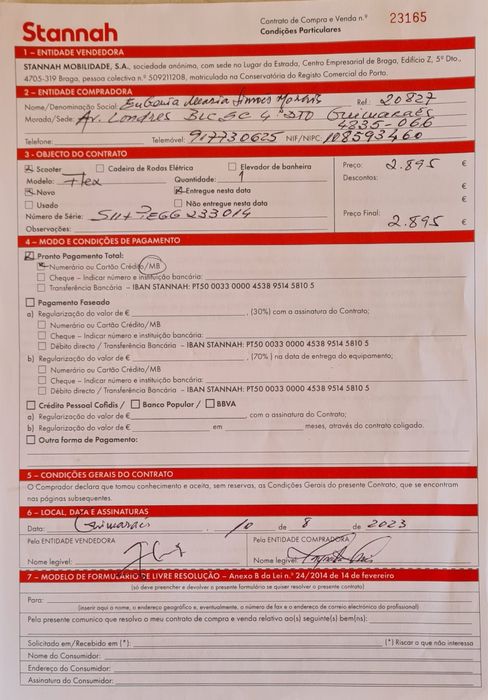 Stannah
Contrato de Compra e Venda n.º 23165
Condições Particulares
1 – ENTIDADE VENDEDORA
STANNAH MOBILIDADE, S.A., sociedade anónima, com sede no Lugar da Estrada, Centro Empresarial de Braga, Edifício Z, 5º Dto.,
4705-319 Braga, pessoa colectiva n.º 509211208, matriculada na Conservatória do Registo Comercial do Porto.
2 – ENTIDADE COMPRADORA
Nome/Denominação Social: Eugénia Maria Simões Morais Ref.: 20827
Morada/Sede: Av. Londres BLC 4º DTO Guimarães
4835-066
Telefone: Telemóvel: 917730625 NIF/NIPC: 108593460
3 – OBJECTO DO CONTRATO
Scooter Cadeira de Rodas Elétrica Elevador de banheira Preço: 2.895 €
Modelo: Flex Quantidade: 1 Descontos:
Novo Entregue nesta data €
Usado Não entregue nesta data €
Número de Série: Preço Final: 2.895 €
Observações:
4 – MODO E CONDIÇÕES DE PAGAMENTO
Pronto Pagamento Total:
Numerário ou Cartão Crédito/MB
Cheque – Indicar número e instituição bancária:
Transferência Bancária – IBAN STANNAH: PT50 0033 0000 4538 9514 5810 5
Pagamento Faseado
a) Regularização do valor de € , (30%) com a assinatura do Contrato;
Numerário ou Cartão Crédito/MB
Cheque – Indicar número e instituição bancária:
Débito directo / Transferência Bancária – IBAN STANNAH: PT50 0033 0000 4538 9514 5810 5
b) Regularização do valor de € , (70%) na data de entrega do equipamento;
Numerário ou Cartão Crédito/MB
Cheque – Indicar número e instituição bancária:
Débito directo / Transferência Bancária – IBAN STANNAH: PT50 0033 0000 4538 9514 5810 5
Crédito Pessoal Cofidis / Banco Popular / BBVA
a) Regularização do valor de € , com a assinatura do Contrato;
b) Regularização do valor de € em meses, através do contrato coligado.
Outra forma de Pagamento:
5 – CONDIÇÕES GERAIS DO CONTRATO
O Comprador declara que tomou conhecimento e aceita, sem reservas, as Condições Gerais do presente Contrato, que se encontram
nas páginas subsequentes.
6 – LOCAL, DATA E ASSINATURAS
Data: Guimarães , 10 de 8 de 2023
Pela ENTIDADE VENDEDORA Pela ENTIDADE COMPRADORA
Nome legível: Nome legível:
7 – MODELO DE FORMULÁRIO DE LIVRE RESOLUÇÃO – Anexo B da Lei n.º 24/2014 de 14 de fevereiro
(só deve preencher e devolver o presente formulário se quiser resolver o presente contrato)
Para:
(inserir aqui o nome, o endereço geográfico e, eventualmente, o número de fax e o endereço de correio electrónico do profissional)
Pela presente comunico que resolvo o meu contrato de compra e venda relativo ao(s) seguinte(s) bem(ns):
Solicitado em/Recebido em (*): (*) Riscar o que não interessa
Nome do Consumidor:
Endereço do Consumidor:
Assinatura do Consumidor: